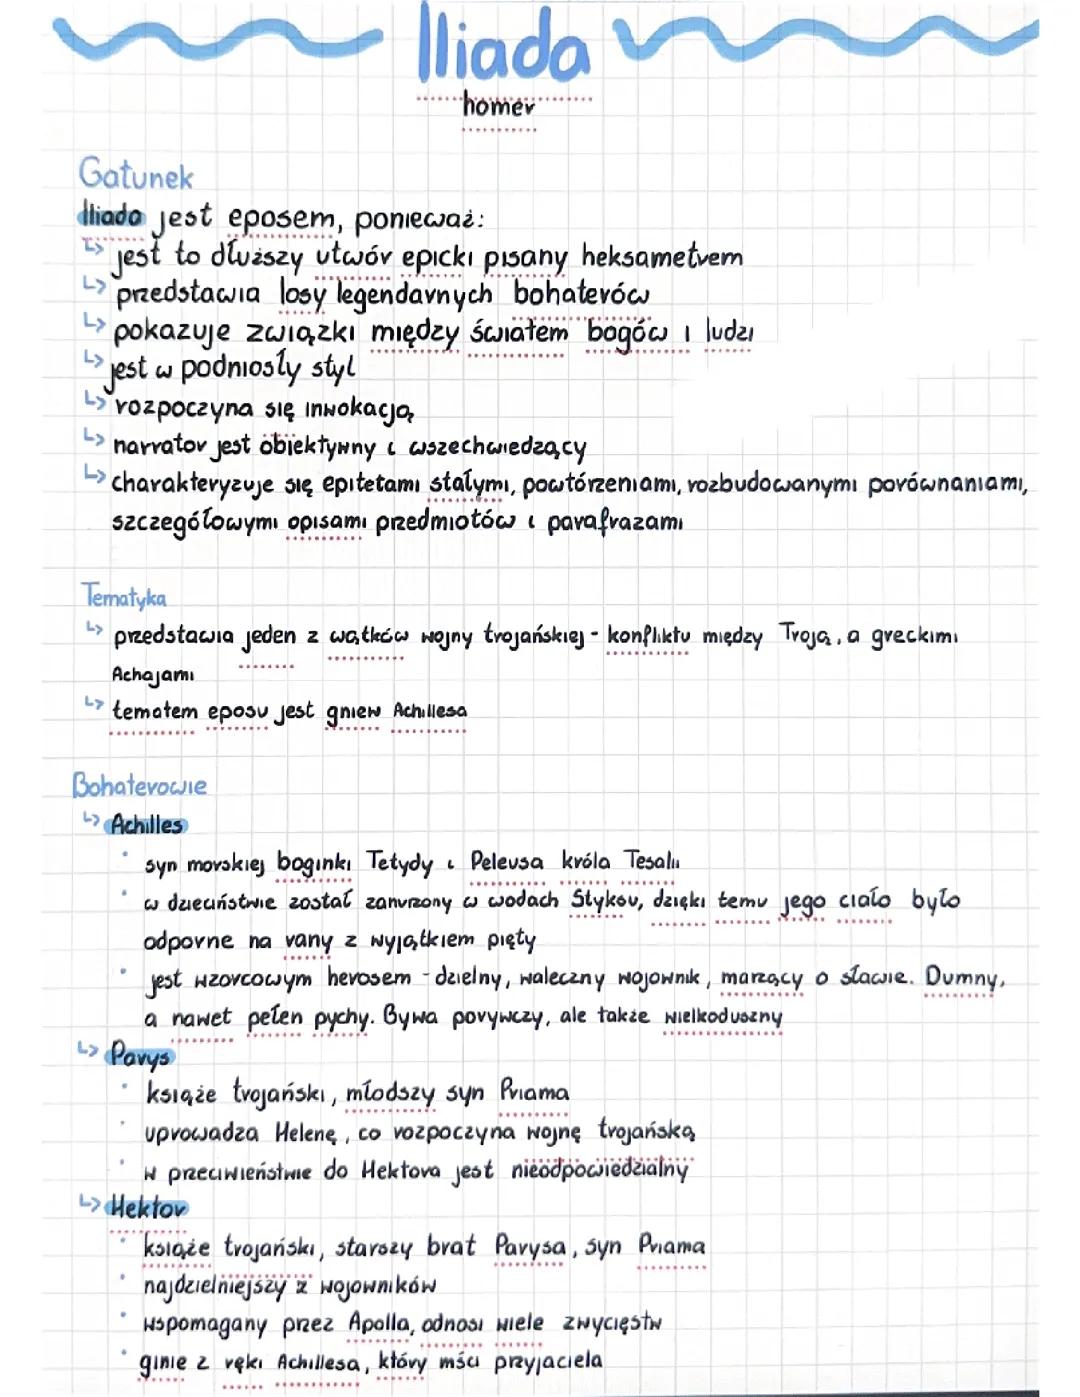 Iliada
homer
Gatunek
Iliada jest eposem, ponieważ:
↳ jest to dłuższy utwór epicki pisany heksametrem
↳ przedstawia losy legendarnych bohaterów
↳ pokazuje związki między światem bogów i ludzi
↳ jest w podniosły styl
↳ rozpoczyna się inwokacją
↳ narrator jest obiektywny i wszechwiedzący
↳ charakteryzuje się epitetami stałymi, powtórzeniami, rozbudowanymi porównaniami,
szczegółowymi opisami przedmiotów i parafrazami
Tematyka
↳ przedstawia jeden z wątków wojny trojańskiej - konfliktu między Troją, a greckimi
Achajami
↳ tematem eposu jest gniew Achillesa
Bohaterowie
↳ Achilles
• syn morskiej boginki Tetydy i Peleusa króla Tesalii
• w dzieciństwie został zanurzony w wodach Styksu, dzięki temu jego ciało było
odporne na rany z wyjątkiem pięty
• jest wzorcowym herosem - dzielny, waleczny wojownik, marzący o sławie. Dumny,
a nawet pełen pychy. Bywa porywczy, ale także wielkoduszny
↳ Parys
• książe trojański, młodszy syn Priama
• uprowadza Helenę, co rozpoczyna wojnę trojańską
• w przeciwieństwie do Hektora jest nieodpowiedzialny
↳ Hektor
• książe trojański, starszy brat Parysa, syn Priama
• najdzielniejszy z wojowników
• wspomagany przez Apolla, odnosi wiele zwycięstw
• ginie z ręki Achillesa, który mści przyjaciela